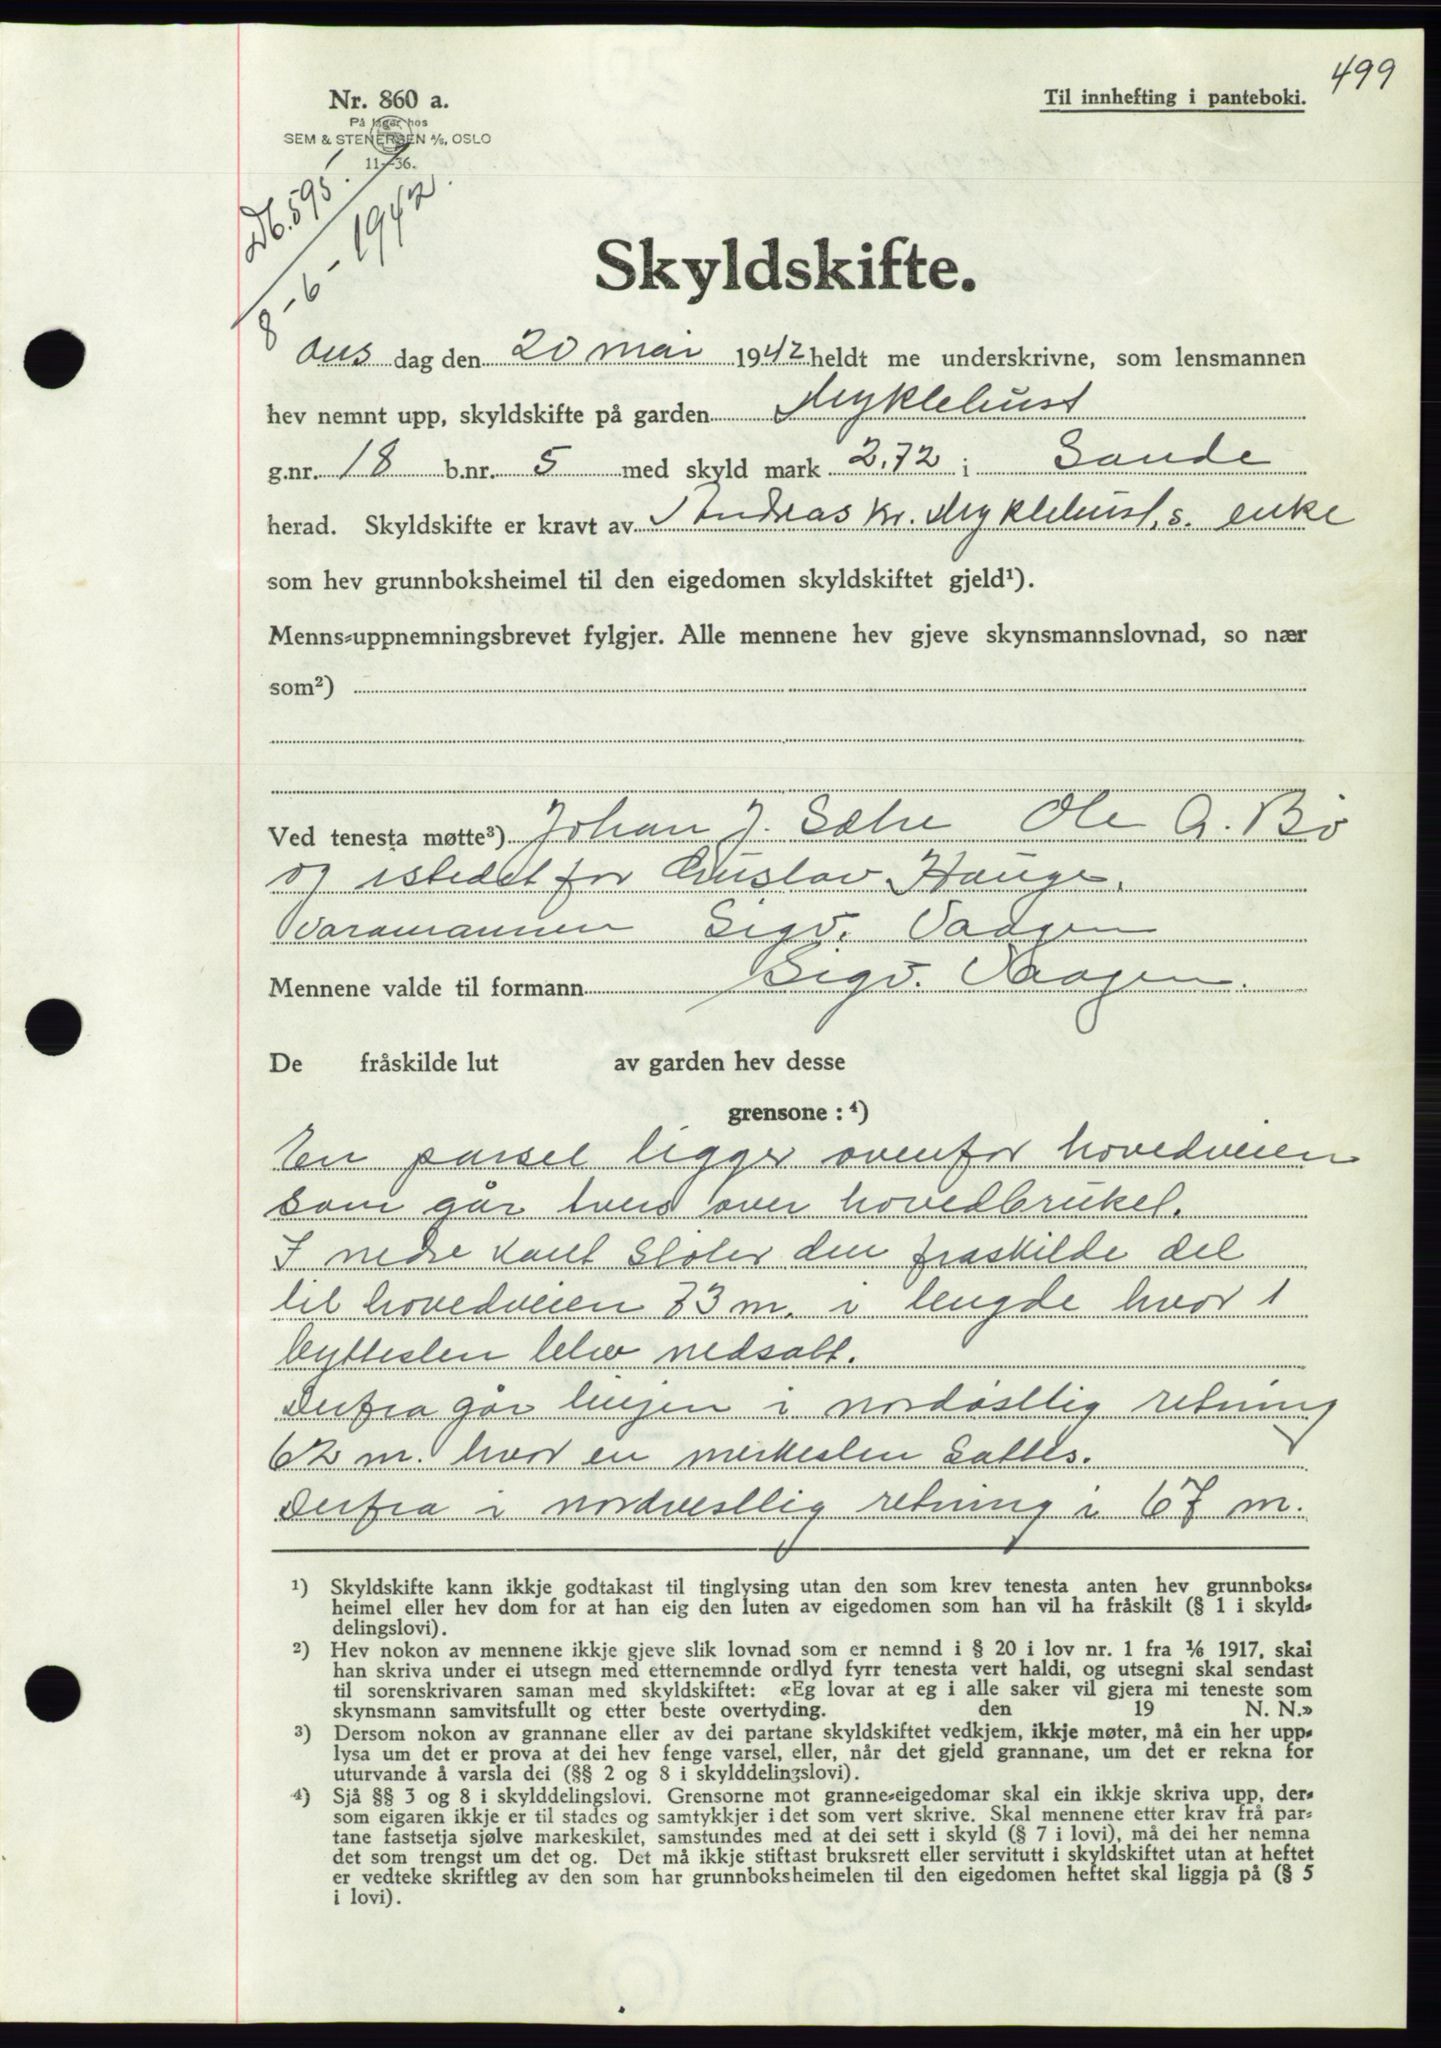 499
Nr. 860 a.
På lager hos
SEM & STENERSEN A/S, OSLO
11—36.
Til innhefting i panteboki.
Db. 595.
8-6-1942.
Skyldskifte.
Ons dag den 20 mai 1942 heldt me underskrivne, som lensmannen
hev nemnt upp, skyldskifte på garden Myklebust
g.nr. 18 b.nr. 5 med skyld mark 2,72 i Sande
herad. Skyldskifte er kravt av Andreas Kr. Myklebust,s. enke
som hev grunnboksheimel til den eigedomen skyldskiftet gjeld¹).
Menns-uppnemningsbrevet fylgjer. Alle mennene hev gjeve skynsmannslovnad, so nær
som²)
Ved tenesta møtte³) Johan J. Sætre Ole A. Bø
og istedet for Gustav Hauge,
varamannen Sigv. Vaagen
Mennene valde til formann Sigv. Vaagen.
De fråskilde lut av garden hev desse
grensone : ⁴)
En parsel ligger ovenfor hovedveien
som går tvers over hovedbruket.
I nedre kant støter den fraskilde del
til hovedveien 73 m. i lengde hvor 1
byttesten blev nedsatt.
Derfra går linjen i nordøstlig retning
62 m. hvor en merkesten sattes.
Derfra i nordvestlig retning i 67 m.
¹) Skyldskifte kann ikkje godtakast til tinglysing utan den som krev tenesta anten hev grunnboks-
heimel eller hev dom for at han eig den luten av eigedomen som han vil ha fråskilt (§ 1 i skyld-
delingslovi).
²) Hev nokon av mennene ikkje gjeve slik lovnad som er nemnd i § 20 i lov nr. 1 fra 1/6 1917, skal
han skriva under ei utsegn med etternemnde ordlyd fyrr tenesta vert haldi, og utsegni skal sendast
til sorenskrivaren saman med skyldskiftet: «Eg lovar at eg i alle saker vil gjera mi teneste som
skynsmann samvitsfullt og etter beste overtyding. den 19 N. N.»
³) Dersom nokon av grannane eller av dei partane skyldskiftet vedkjem, ikkje møter, må ein her upp-
lysa um det er prova at dei hev fenge varsel, eller, når det gjeld grannane, um det er rekna for
uturvande å varsla dei (§§ 2 og 8 i skylddelingslovi).
⁴) Sjå §§ 3 og 8 i skylddelingslovi. Grensorne mot granne-eigedomar skal ein ikkje skriva upp, der-
som eigaren ikkje er til stades og samtykkjer i det som vert skrive. Skal mennene etter krav frå par-
tane fastsetja sjølve markeskilet, samstundes med at dei sett i skyld (§ 7 i lovi), må dei her nemna
det som trengst um det og. Det må ikkje stiftast bruksrett eller servitutt i skyldskiftet utan at heftet
er vedteke skriftleg av den som har grunnboksheimelen til den eigedomen heftet skal liggja på (§ 5
i lovi).